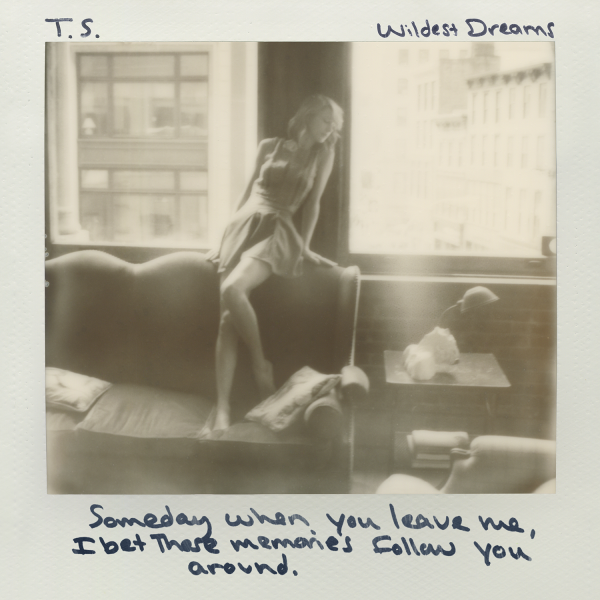 T. S.
Wildest Dreams
Someday when you leave me,
I bet these memories follow you
around.